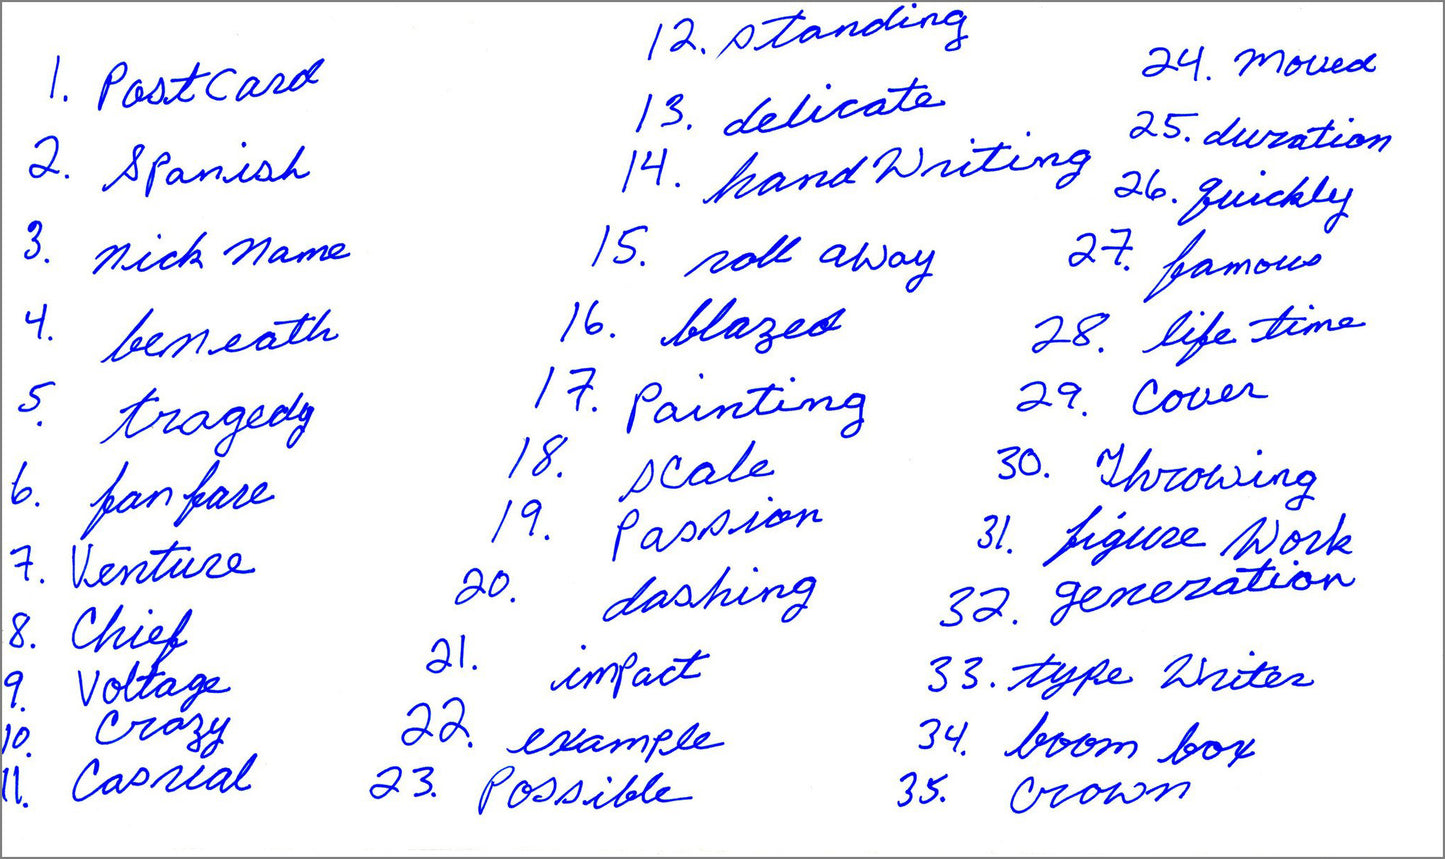 1. PostCard
2. Spanish
3. nick name
4. beneath
5. tragedy
6. fanfare
7. Venture
8. Chief
9. Voltage
10. Crazy
11. Casual
12. standing
13. delicate
14. handWriting
15. roll away
16. blazed
17. Painting
18. scale
19. Passion
20. dashing
21. impact
22. example
23. Possible
24. moved
25. duration
26. quickly
27. famous
28. life time
29. Cover
30. Throwing
31. figure Work
32. generation
33. type Writer
34. boom box
35. Crown